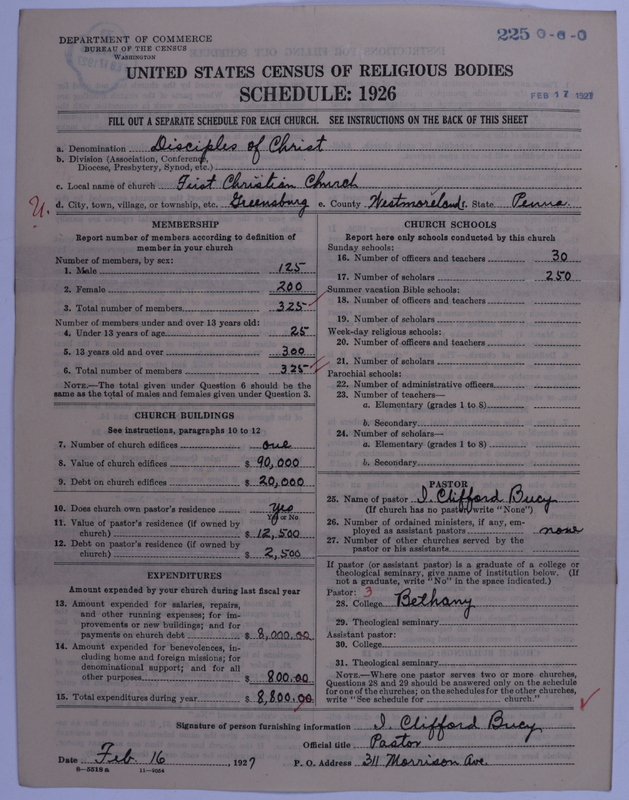 DEPARTMENT OF COMMERCE
BUREAU OF THE CENSUS
WASHINGTON
225 0-6-0
UNITED STATES CENSUS OF RELIGIOUS BODIES
SCHEDULE: 1926
FEB 17 1927
FILL OUT A SEPARATE SCHEDULE FOR EACH CHURCH. SEE INSTRUCTIONS ON THE BACK OF THIS SHEET
a. Denomination Disciples of Christ
b. Division (Association, Conference,
Diocese, Presbytery, Synod, etc.)
c. Local name of church First Christian Church
U. d. City, town, village, or township, etc. Greensburg e. County Westmoreland f. State Penna.
MEMBERSHIP
Report number of members according to definition of
member in your church
Number of members, by sex:
1. Male 125
2. Female 200
3. Total number of members 325
Number of members under and over 13 years old:
4. Under 13 years of age 25
5. 13 years old and over 300
6. Total number of members 325
NOTE.—The total given under Question 6 should be the
same as the total of males and females given under Question 3.
CHURCH BUILDINGS
See instructions, paragraphs 10 to 12
7. Number of church edifices one
8. Value of church edifices $ 90,000
9. Debt on church edifices $ 20,000
10. Does church own pastor's residence yes
Yes or No
11. Value of pastor's residence (if owned by
church) $ 12,500
12. Debt on pastor's residence (if owned by
church) $ 2,500
EXPENDITURES
Amount expended by your church during last fiscal year
13. Amount expended for salaries, repairs,
and other running expenses; for im-
provements or new buildings; and for
payments on church debt $ 8,000.00
14. Amount expended for benevolences, in-
cluding home and foreign missions; for
denominational support; and for all
other purposes $ 800.00
15. Total expenditures during year $ 8,800.00
CHURCH SCHOOLS
Report here only schools conducted by this church
Sunday schools:
16. Number of officers and teachers 30
17. Number of scholars 250
Summer vacation Bible schools:
18. Number of officers and teachers
19. Number of scholars
Week-day religious schools:
20. Number of officers and teachers
21. Number of scholars
Parochial schools:
22. Number of administrative officers
23. Number of teachers—
a. Elementary (grades 1 to 8)
b. Secondary
24. Number of scholars—
a. Elementary (grades 1 to 8)
b. Secondary
PASTOR
25. Name of pastor I. Clifford Bucy
(If church has no pastor, write "None")
26. Number of ordained ministers, if any, em-
ployed as assistant pastors none
27. Number of other churches served by the
pastor or his assistants
If pastor (or assistant pastor) is a graduate of a college or
theological seminary, give name of institution below. (If
not a graduate, write "No" in the space indicated.)
Pastor: 3
28. College Bethany
29. Theological seminary
Assistant pastor:
30. College
31. Theological seminary
NOTE.—Where one pastor serves two or more churches,
Questions 28 and 29 should be answered only on the schedule
for one of the churches; on the schedules for the other churches,
write "See schedule for church."
Signature of person furnishing information I. Clifford Bucy
Official title Pastor
Date Feb. 16, 1927 P. O. Address 311 Morrison Ave.
8—5519a 11—9054